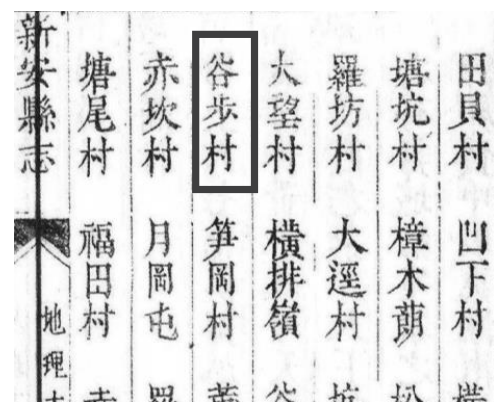 田貝村 凹下村
塘坑村 樟木蓢
羅坊村 大逕村
大望村 橫排嶺
谷步村 笋岡村
赤坎村 月岡屯
塘尾村 福田村
新安縣志 地理